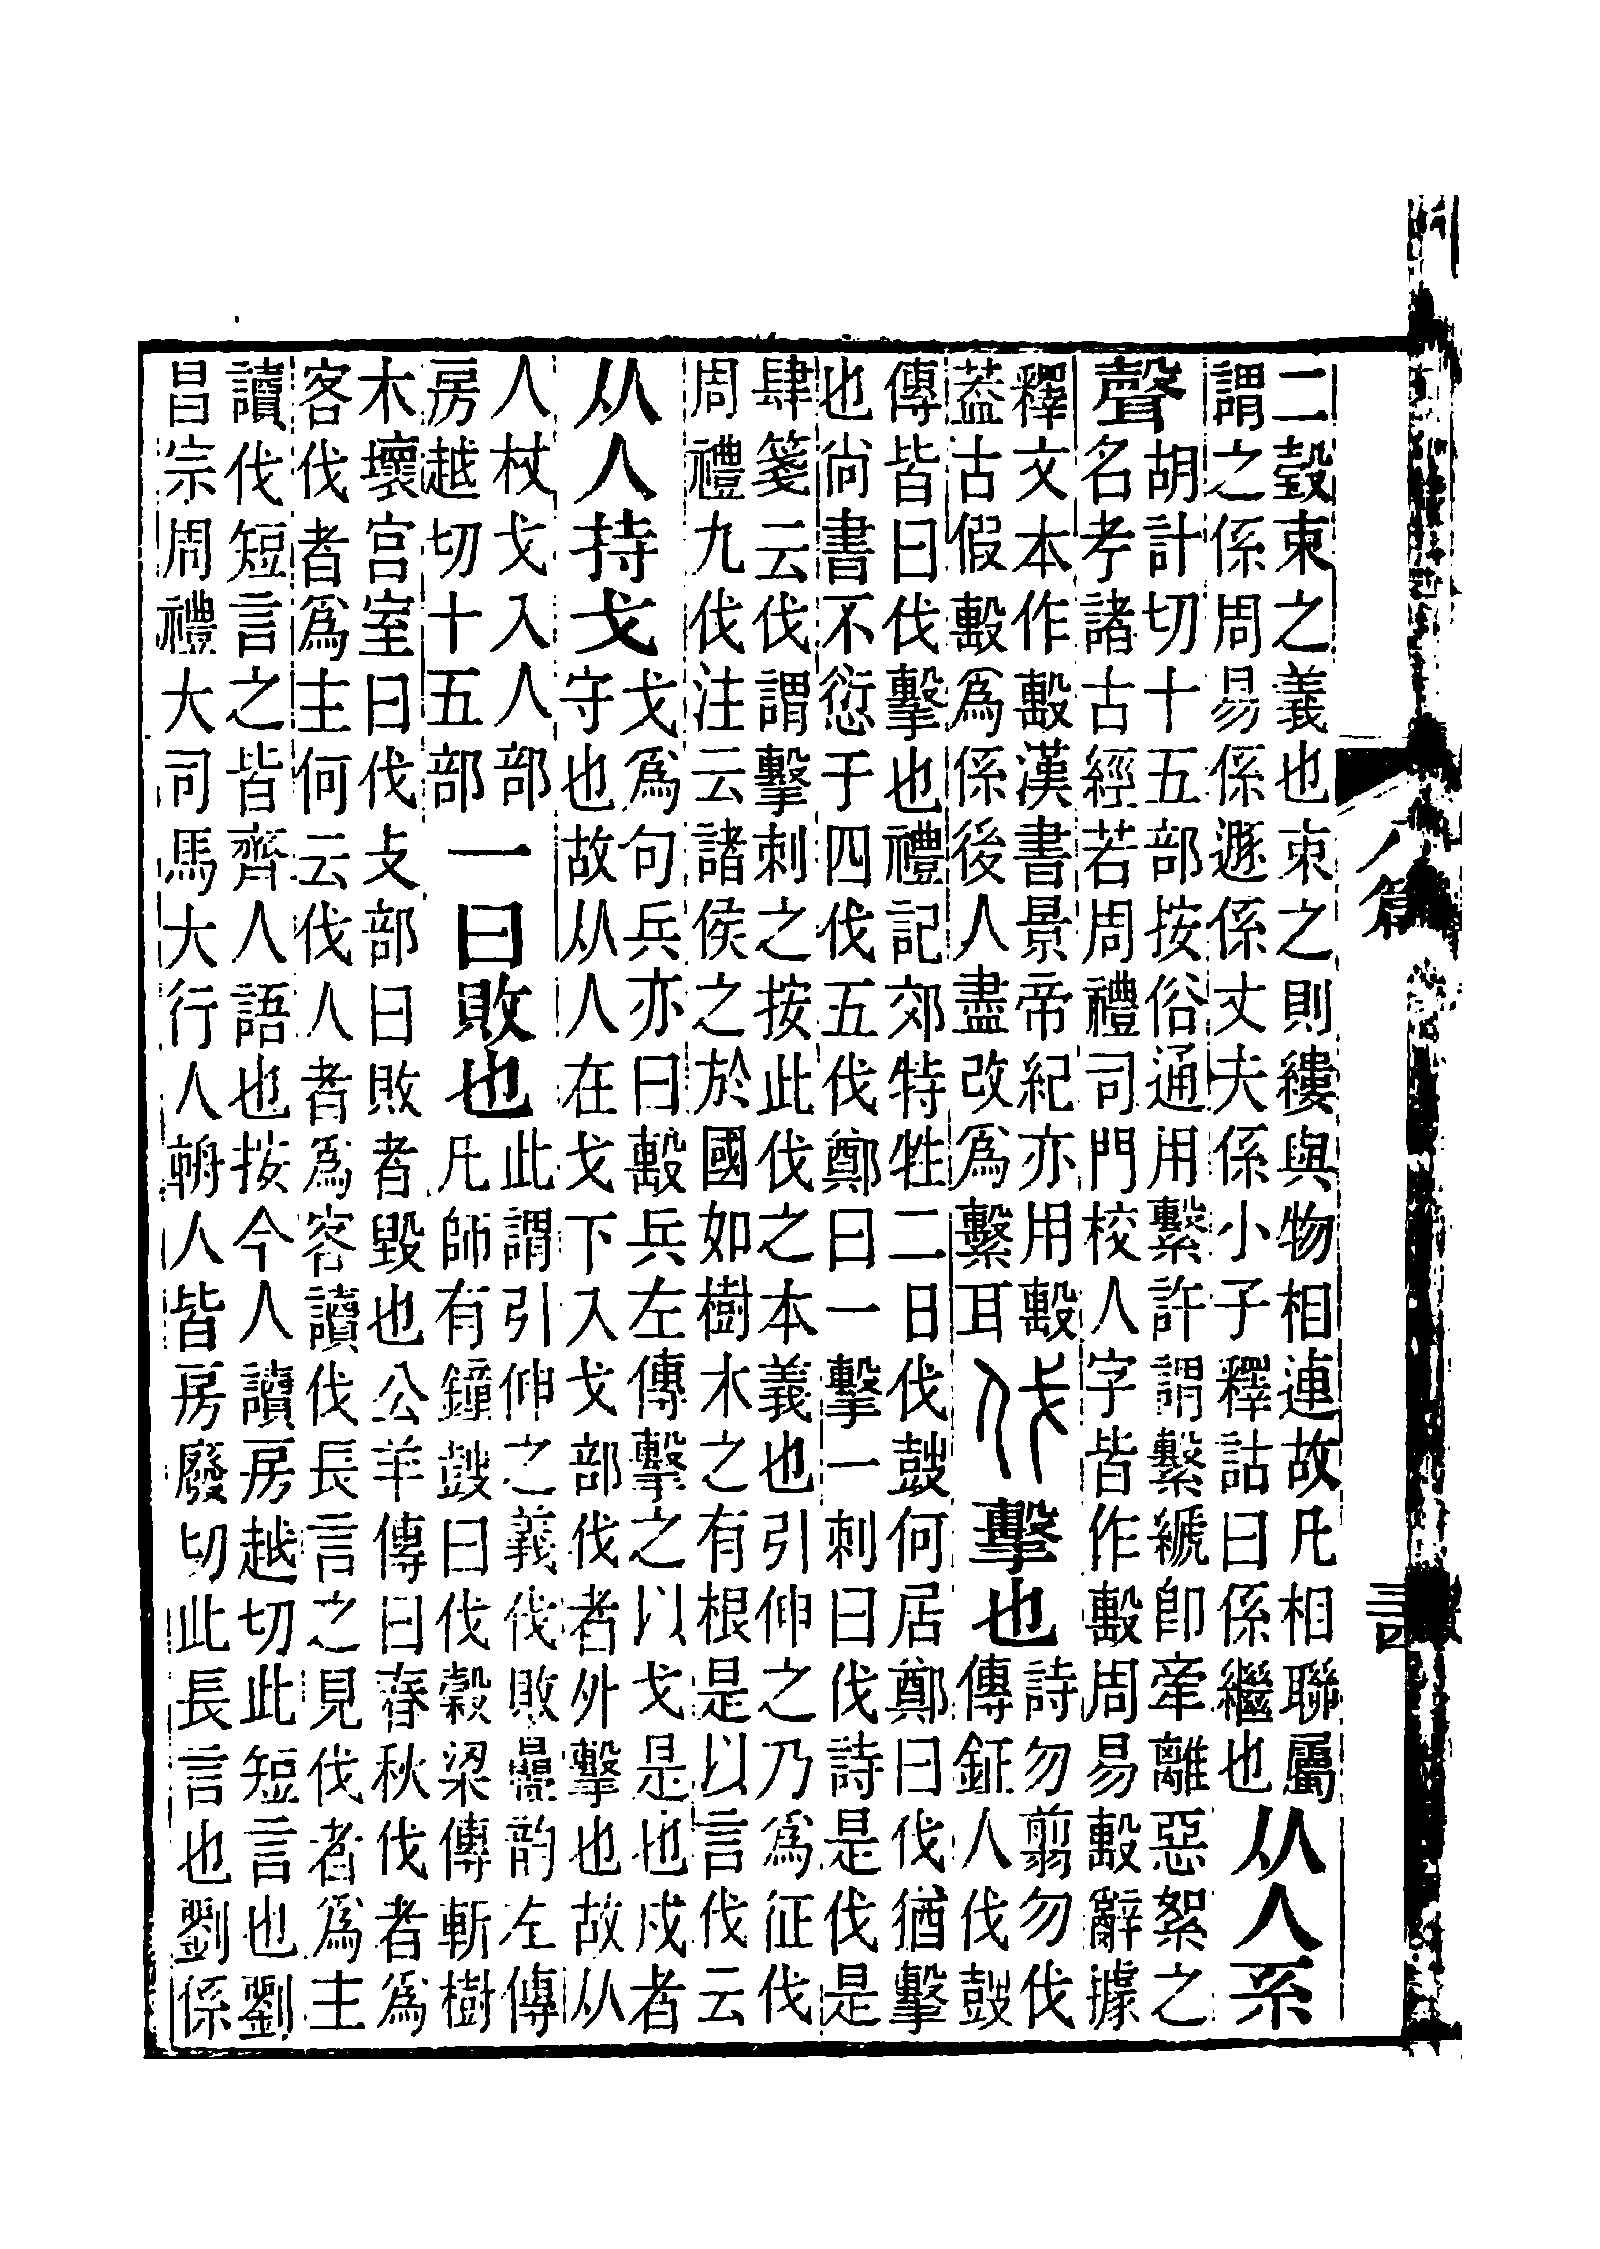 二㲄束之義也束之則縷與物相連故凡相聯屬謂之係周易係遯係丈夫係小子釋詁曰係繼也从人系
聲胡計切十五部按俗通用繫許謂繫𦃇卽牽離惡絮之名考諸古經若周禮司門校人字皆作毄周易毄辭據
釋文本作毄漢書景帝紀亦用毄葢古假毄爲係後人盡改爲繫耳伐擊也詩勿翦勿伐傳鉦人伐鼓
傳皆曰伐擊也禮記郊特牲二日伐鼓何居鄭曰伐猶擊也尙書不愆于四伐五伐鄭曰一擊一刺曰伐詩是伐是
肆箋云伐謂擊刺之按此伐之本義也引伸之乃爲征伐周禮九伐注云諸侯之於國如樹木之有根是以言伐云
从人持戈戈爲句兵亦曰毄兵左傳擊之以戈是也戍者守也故从人在戈下入戈部伐者外擊也故从
人杖戈入人部房越切十五部一曰敗也此謂引伸之義伐敗曡韵左傳凡師有鐘鼓曰伐穀梁傳斬樹
木壞宮室曰伐攴部曰敗者毀也公羊傳曰春秋伐者爲客伐者爲主何云伐人者爲客讀伐長言之見伐者爲主
讀伐短言之皆齊人語也按今人讀房越切此短言也劉昌宗周禮大司馬大行人輈人皆房廢切此長言也劉係
八篇